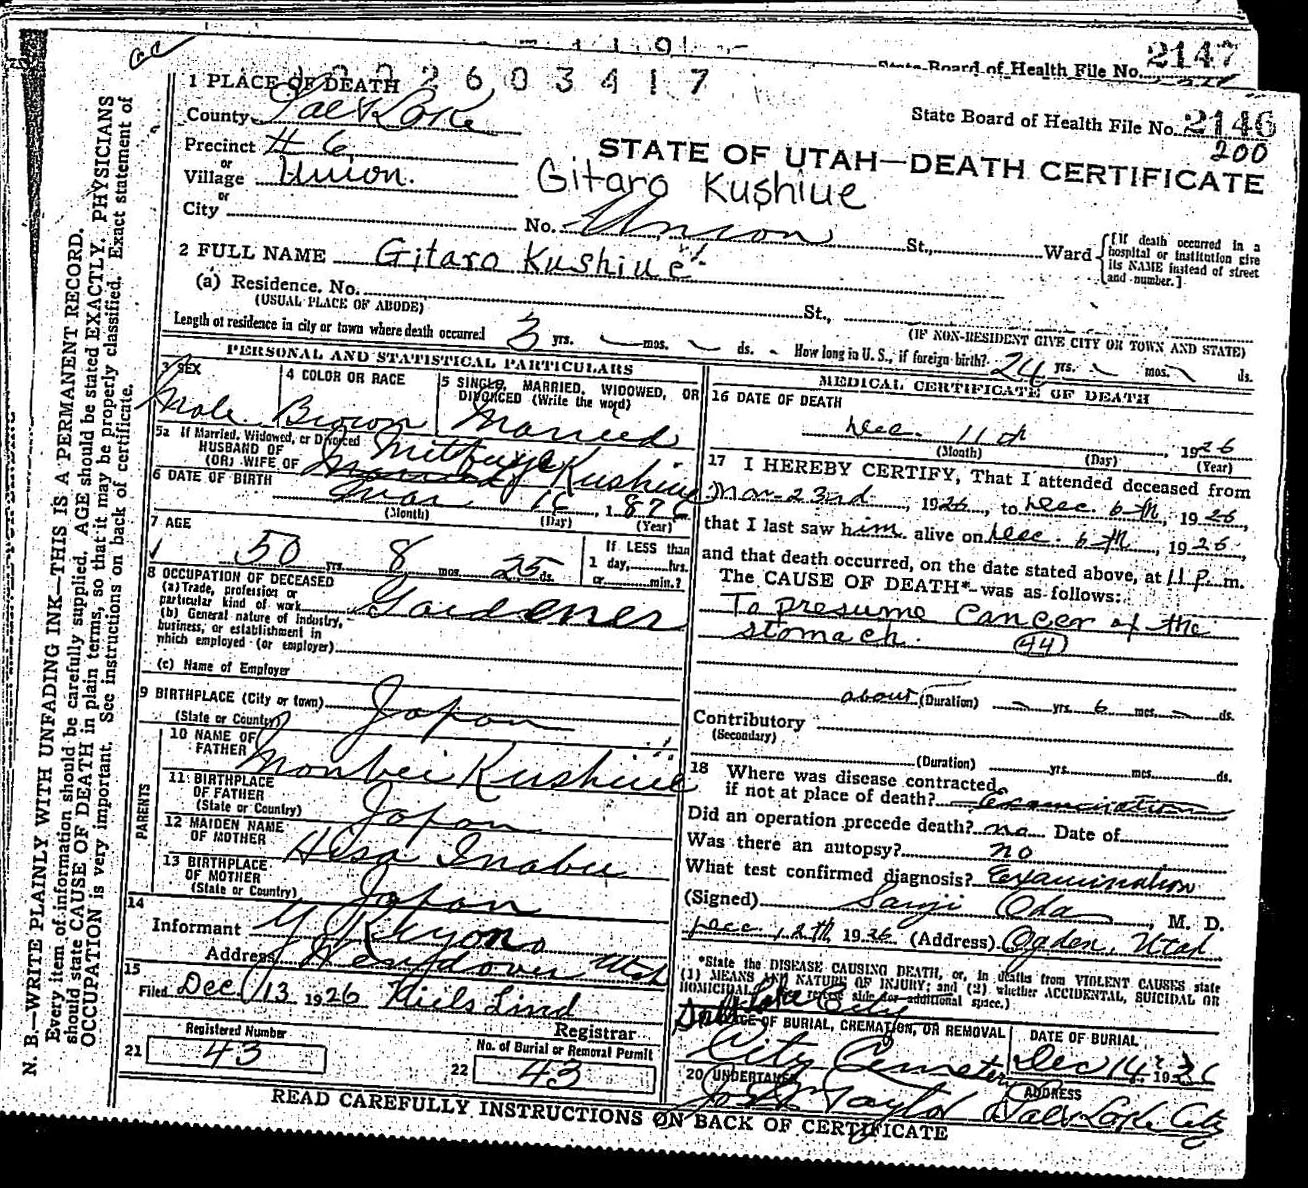 2147
State Board of Health File No.
1 PLACE OF DEATH
2603417
County Salt Lake
State Board of Health File No. 2146
200
Precinct # 6
or
Village Union.
or
City
STATE OF UTAH—DEATH CERTIFICATE
Gitaro Kushiue
No. Union St., Ward
[If death occurred in a hospital or institution give its NAME instead of street and number.]
2 FULL NAME Gitaro Kushiue
(a) Residence. No. St.,
(USUAL PLACE OF ABODE) (IF NON-RESIDENT GIVE CITY OR TOWN AND STATE)
Length of residence in city or town where death occurred 3 yrs. mos. ds. How long in U. S., if foreign birth? 24 yrs. mos. ds.
PERSONAL AND STATISTICAL PARTICULARS
3 SEX
Male
4 COLOR OR RACE
Brown
5 SINGLE, MARRIED, WIDOWED, OR
DIVORCED (Write the word)
Married
5a If Married, Widowed, or Divorced
HUSBAND OF
(OR) WIFE OF Kushiue
6 DATE OF BIRTH Mar 16, 1876
(Month) (Day) (Year)
7 AGE
50 yrs. 8 mos. 25 ds.
If LESS than
1 day, hrs.
or min.?
8 OCCUPATION OF DECEASED
(a) Trade, profession or
particular kind of work Gardener
(b) General nature of industry,
business, or establishment in
which employed (or employer)
(c) Name of Employer
9 BIRTHPLACE (City or town)
(State or Country) Japan
PARENTS
10 NAME OF
FATHER Monbei Kushiue
11 BIRTHPLACE
OF FATHER
(State or Country) Japan
12 MAIDEN NAME
OF MOTHER Hisa Inabu
13 BIRTHPLACE
OF MOTHER
(State or Country) Japan
14
Informant Y Kiyono
Address Wendover Utah
15
Filed Dec 13 1926 Niels Lind
Registrar
Registered Number
21 43
No. of Burial or Removal Permit
22 43
MEDICAL CERTIFICATE OF DEATH
16 DATE OF DEATH
Dec. 11th, 1926
(Month) (Day) (Year)
17 I HEREBY CERTIFY, That I attended deceased from
Nov-23rd, 1926, to Dec. 6th, 1926,
that I last saw him alive on Dec. 6th, 1926,
and that death occurred, on the date stated above, at 11 P. m.
The CAUSE OF DEATH* was as follows:
To presume Cancer of the
stomach. (44)
about (Duration) yrs. 6 mos. ds.
Contributory
(Secondary)
(Duration) yrs. mos. ds.
18 Where was disease contracted
if not at place of death? examination
Did an operation precede death? no Date of
Was there an autopsy? no
What test confirmed diagnosis? Examination
(Signed) Sanji Oda, M. D.
Dec., 12th, 1926 (Address) Ogden, Utah
*State the DISEASE CAUSING DEATH, or, in deaths from VIOLENT CAUSES state
(1) MEANS AND NATURE OF INJURY; and (2) whether ACCIDENTAL, SUICIDAL OR
HOMICIDAL. side for additional space.)
Salt Lake City
PLACE OF BURIAL, CREMATION, OR REMOVAL
City Cemetery
DATE OF BURIAL
Dec 14, 1926
20 UNDERTAKER
Taylor
ADDRESS
Salt Lake City
READ CAREFULLY INSTRUCTIONS ON BACK OF CERTIFICATE
N. B.—WRITE PLAINLY WITH UNFADING INK—THIS IS A PERMANENT RECORD.
Every item of information should be carefully supplied. AGE should be stated EXACTLY. PHYSICIANS
should state CAUSE OF DEATH in plain terms, so that it may be properly classified. Exact statement of
OCCUPATION is very important. See instructions on back of certificate.